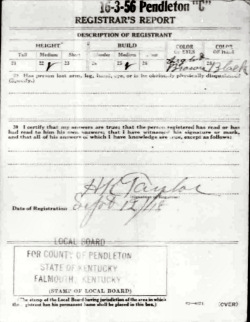 16-3-56 Pendleton "C"
REGISTRAR'S REPORT
DESCRIPTION OF REGISTRANT
HEIGHT BUILD COLOR OF EYES COLOR OF HAIR
Tall Medium Short Slender Medium Stout
21 22 23 24 25 26 27 28
Brown Black
29 Has person lost arm, leg, hand, eye, or is he obviously physically disqualified?
(Specify.)
30 I certify that my answers are true; that the person registered has read or has
had read to him his own answers; that I have witnessed his signature or mark,
and that all of his answers of which I have knowledge are true, except as follows:
Taylor
Date of Registration Sept 12/18
LOCAL BOARD
FOR COUNTY OF PENDLETON
STATE OF KENTUCKY
FALMOUTH, KENTUCKY
(STAMP OF LOCAL BOARD)
(The stamp of the Local Board having jurisdiction of the area in which
the registrant has his permanent home shall be placed in this box.)
(OVER)